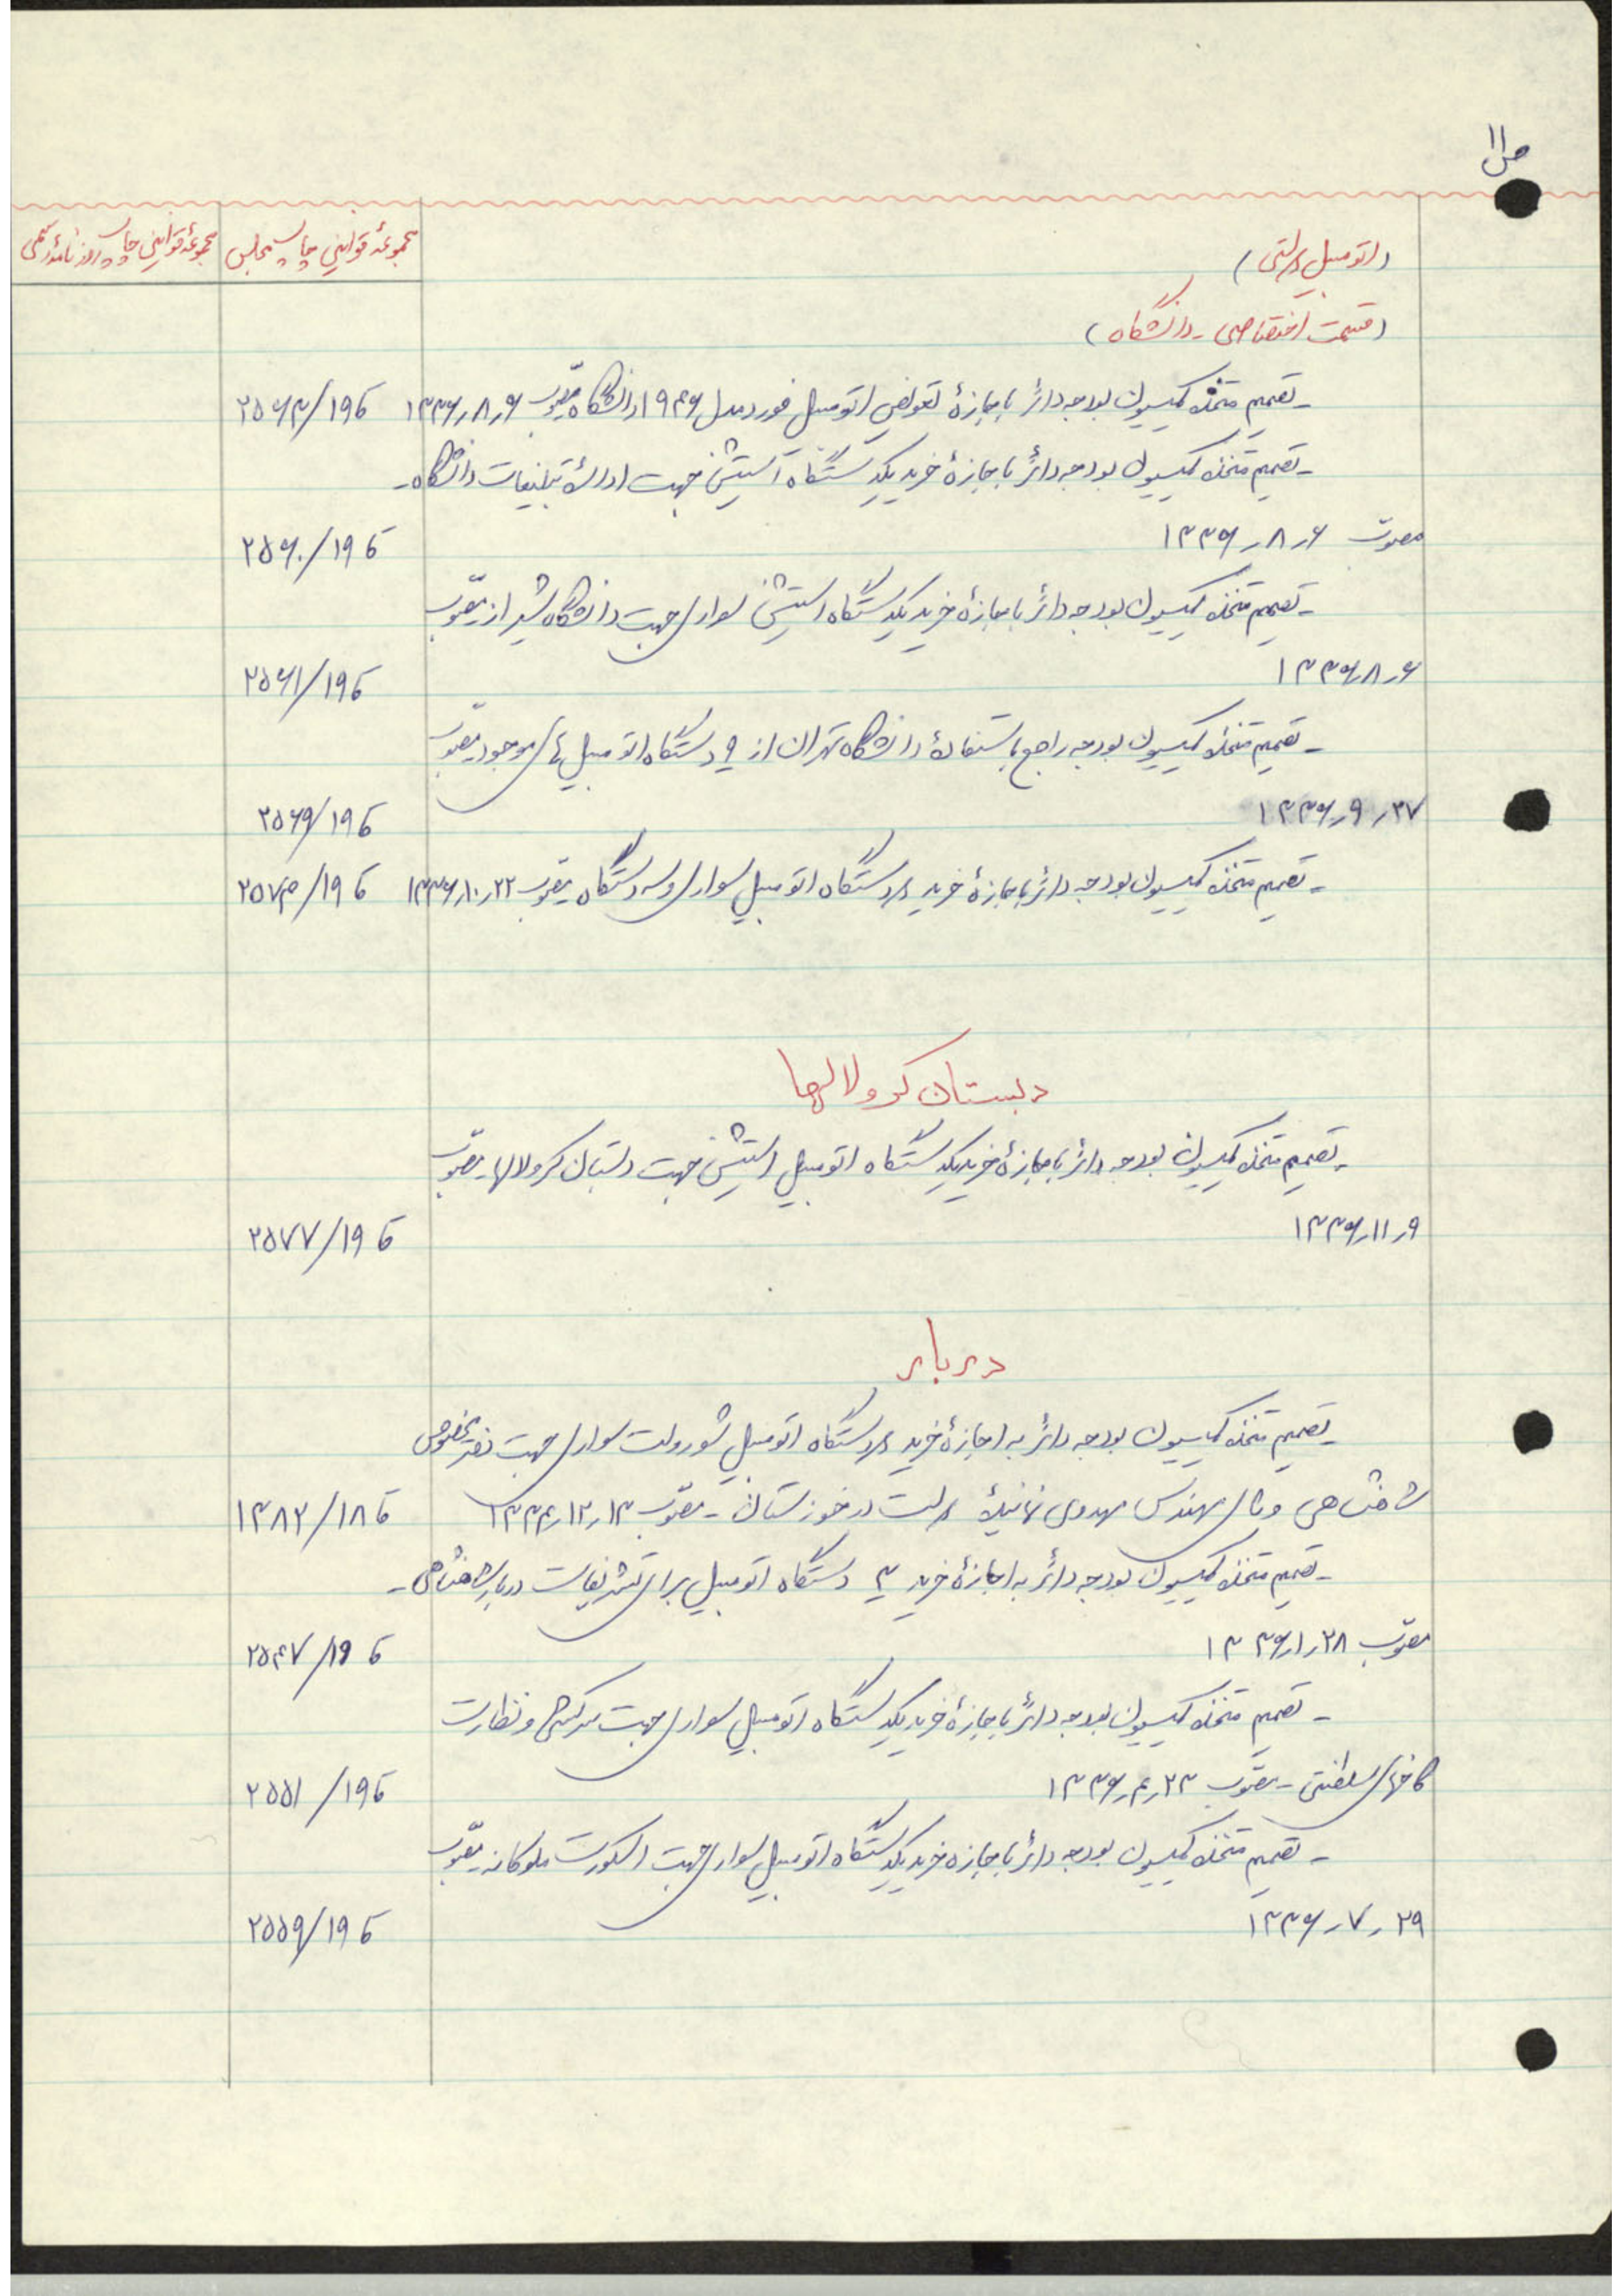 ص ۱۱
مجموعهٔ قوانین چاپ مجلس
مجموعهٔ قوانین چاپ روزنامهٔ رسمی
(اتومبیل دولتی)
(قسمت اختصاصی - دانشگاه)
- تصمیم متخذه کمیسیون بودجه دائر باجازهٔ تعویض اتومبیل فورد مدل ۱۹۴۶ دانشگاه مصوّب ۶ر۸ر۱۳۳۶ ق ۱۹/۲۵۶۳
- تصمیم متخذه کمیسیون بودجه دائر باجازهٔ خرید یکدستگاه استیشن جهت ادارهٔ تبلیغات دانشگاه -
مصوّب ۶ر۸ر۱۳۳۶ ق ۱۹/۲۵۶۰
- تصمیم متخذه کمیسیون بودجه دائر باجازهٔ خرید یکدستگاه استیشن سواری جهت دانشگاه شیراز مصوّب
۶ر۸ر۱۳۳۶ ق ۱۹/۲۵۶۱
- تصمیم متخذه کمیسیون بودجه راجع باستفادهٔ دانشگاه تهران از ۹ دستگاه اتومبیل های موجود مصوّب
۲۷ر۹ر۱۳۳۶ ق ۱۹/۲۵۶۹
- تصمیم متخذه کمیسیون بودجه دائر باجازهٔ خرید دو دستگاه اتومبیل سواری و سه دستگاه مصوّب ۲۲ر۱۰ر۱۳۳۶ ق ۱۹/۲۵۷۳
دبستان کرولالها
- تصمیم متخذه کمیسیون بودجه دائر باجازهٔ خرید یکدستگاه اتومبیل استیشن جهت دبستان کرولالها - مصوّب
۹ر۱۱ر۱۳۳۶ ق ۱۹/۲۵۷۷
دربار
- تصمیم متخذه کمیسیون بودجه دائر به اجازهٔ خرید دو دستگاه اتومبیل شورولت سواری جهت دفتر مخصوص
شاهنشاهی و آقای مهندس مهدوی نمایندهٔ دولت در خوزستان - مصوّب ۱۳ر۱۲ر۱۳۳۴ ق ۱۸/۱۳۸۲
- تصمیم متخذه کمیسیون بودجه دائر به اجازهٔ خرید ۳ دستگاه اتومبیل برای تشریفات دربار شاهنشاهی -
مصوّب ۲۸ر۱ر۱۳۳۶ ق ۱۹/۲۵۴۷
- تصمیم متخذه کمیسیون بودجه دائر باجازهٔ خرید یکدستگاه اتومبیل سواری جهت سرکشی و نظارت
کاخهای سلطنتی - مصوّب ۲۳ر۴ر۱۳۳۶ ق ۱۹/۲۵۵۱
- تصمیم متخذه کمیسیون بودجه دائر باجازه خرید یکدستگاه اتومبیل سواری جهت اسکورت ملوکانه مصوّب
۲۹ر۷ر۱۳۳۶ ق ۱۹/۲۵۵۹